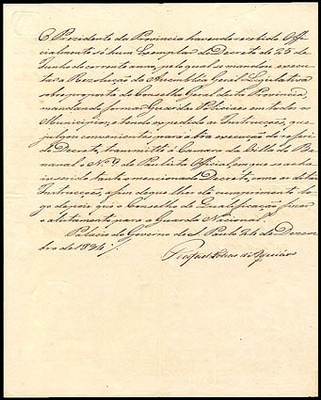 O Presidente da Provincia havendo recebido Offi-
cialmente só hum Exemplar do Decreto de 25 de
Junho do corrente anno, pelo qual se mandou execu-
tar a Resolução da Assembléa Geral Legislativa
sobre proposta do Conselho Geral desta Provincia,
mandando formar Guardas Policiaes em todos os
Municipios, e tendo expedido as Instrucções, que
julgou convenientes para a boa execução do referi-
do Decreto, transmitte á Camara da Villa de
o N. 9 do Paulista Official, em que se acha
inserido tanto o mencionado Decreto, como as ditas
Instrucções, a fim de que lhe dê cumprimento lo-
go depois que o Conselho de Qualificação fizer
o alistamento para a Guarda Nacional.
Palacio do Governo de S. Paulo 24 de Dezem-
bro de 1834
Rafael Tobias de Aguiar